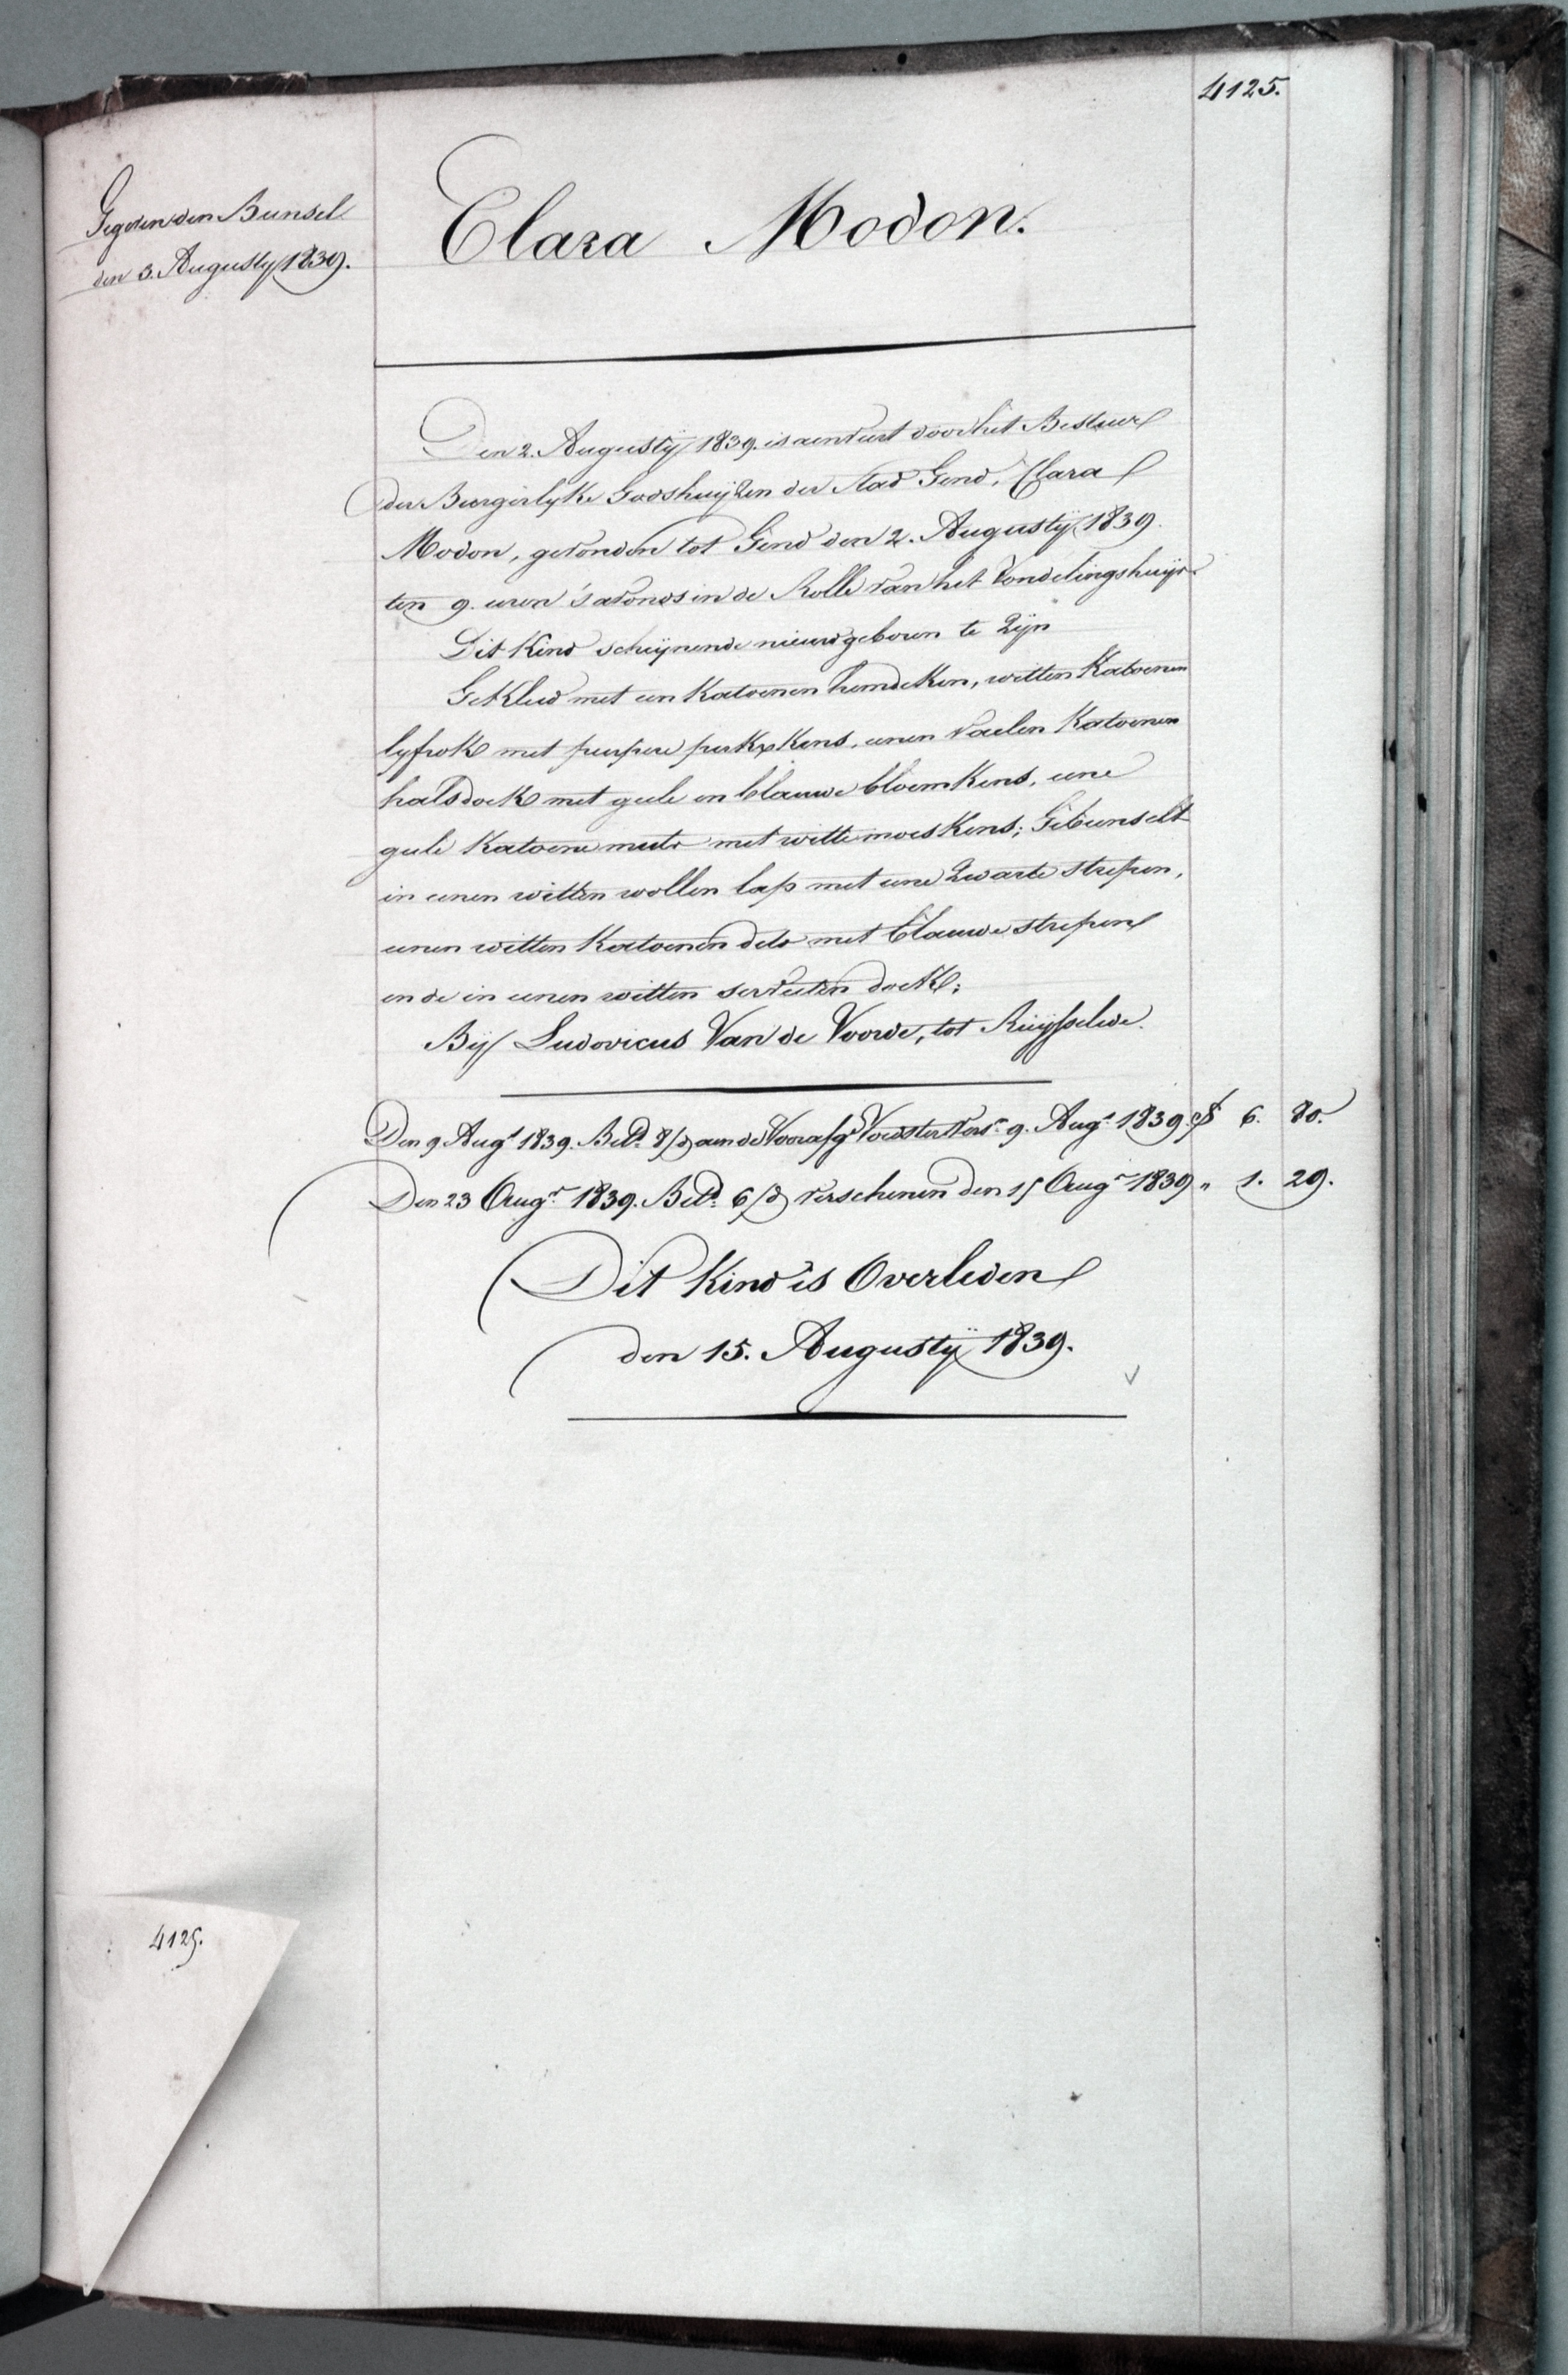 4125.
Gegeven den Bunsel
den 3. Augustÿ 1839.
Clara Modon.
Den 2. Augustÿ 1839. is aenveert door het Bestuer
der Burgerlyke Godshuÿzen der Stad Gend, Clara
Modon, gevonden tot Gend den 2. Augustÿ 1839.
ten 9. uren 's avonds in de Rolle van het Vondelingshuÿs.
Dit Kind schÿnende nieuwgeboren te Zÿn
Gekleed met een Katoenen hemdeken, witten Katoenen
lyfrok met purpere perkxkens, eenen vaelen Katoenen
halsdoek met geele en blauwe bloemkens, eene
geele Katoene muts met witte moeskens; Gebunselt
in eenen witten wollen lap met eene Zwarte strepen,
eenen witten Katoenen dito met blauwe strepen
ende in eenen witten servieten doek;
Bÿ Ludovicus Van de Voorde, tot Ruÿsselede.
Den 9 Augt 1839. Betd. 8/d aen de Voorafge Voedster Vers. 9. Augt 1839. 6. 80.
Den 23 Augt 1839. Betd. 6/d verschenen den 15 Augt 1839 „ 1. 29.
Dit Kind is Overleden
den 15. Augustÿ 1839.
4125.